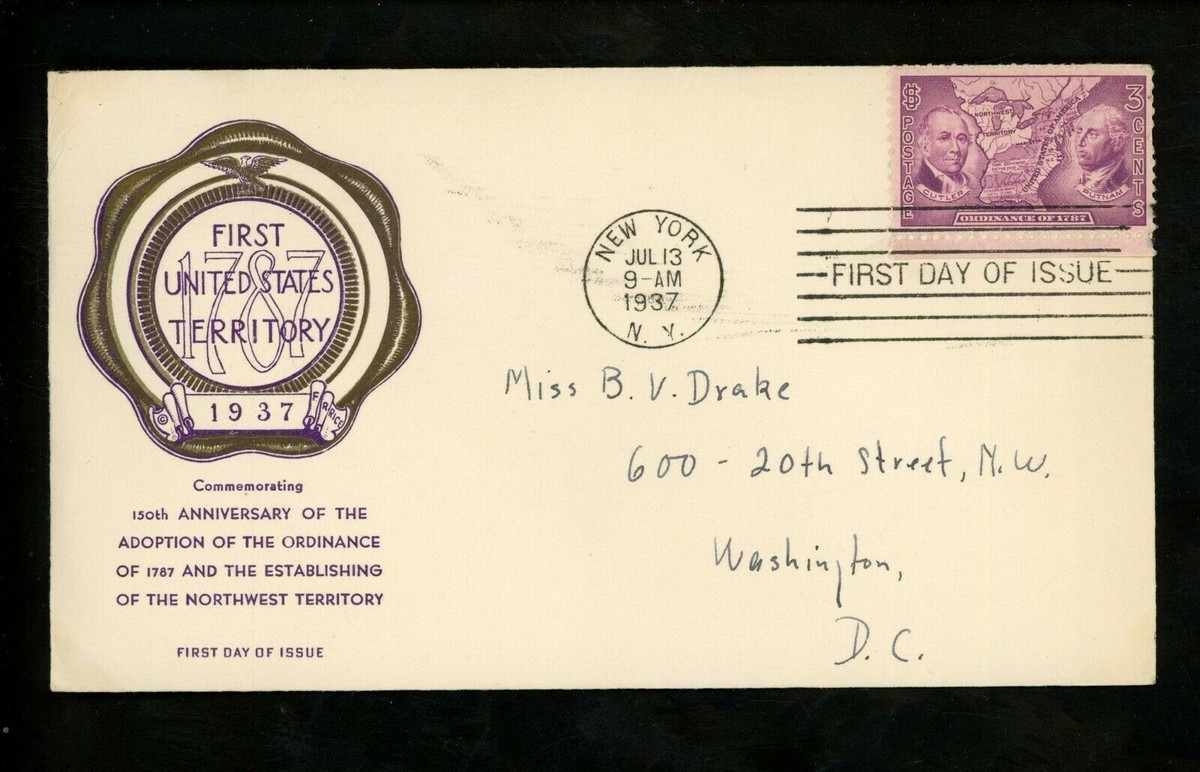 FIRST
UNITED STATES
TERRITORY
1787
1937
© F. R. RICE
Commemorating
150th ANNIVERSARY OF THE
ADOPTION OF THE ORDINANCE
OF 1787 AND THE ESTABLISHING
OF THE NORTHWEST TERRITORY
FIRST DAY OF ISSUE
NEW YORK
JUL 13
9-AM
1937
N. Y.
$ POSTAGE
3 CENTS
NORTHWEST
TERRITORY
UNITED STATES OF AMERICA
CUTLER
PUTNAM
ORDINANCE OF 1787
FIRST DAY OF ISSUE
Miss B. V. Drake
600 - 20th Street, N.W.
Washington,
D. C.